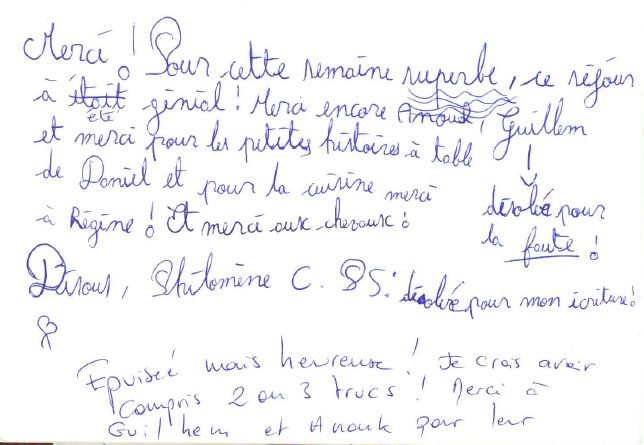 Merci ! Pour cette semaine superbe, ce séjour
à été génial ! Merci encore Anouk, Guillem
et merci pour les petites histoires à table
de Daniel et pour la cuisine merci
à Régine ! Et merci aux chevaux !
désolée pour
la faute !
Bisous, Philomène C. PS : désolée pour mon écriture !
Epuisée mais heureuse ! Je crois avoir
compris 2 ou 3 trucs ! Merci à
Guilhem et Anouk pour leur